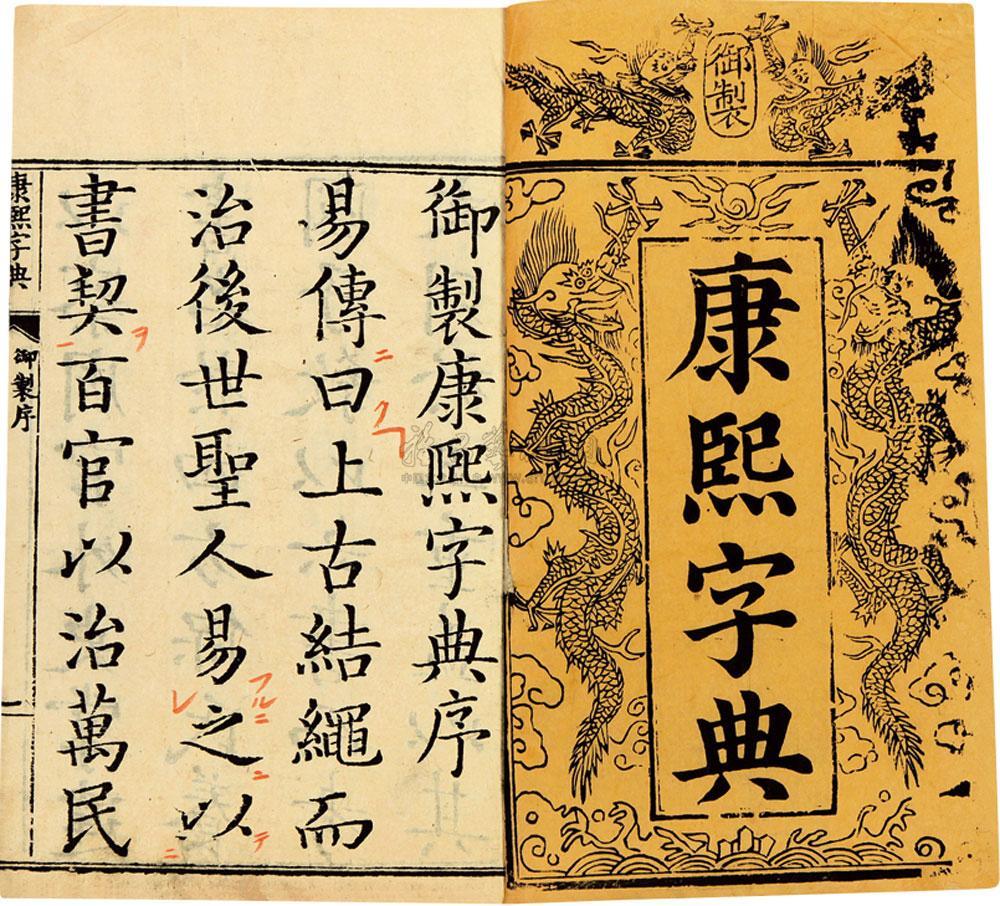 御製
康熙字典
御製康熙字典序
易傳曰上古結繩而
ニ
ク
治後世聖人易之以
フルニ
レ
ニ
テ
ニ
書契百官以治萬民
ヲ
ニ
康熙字典
御製序
一